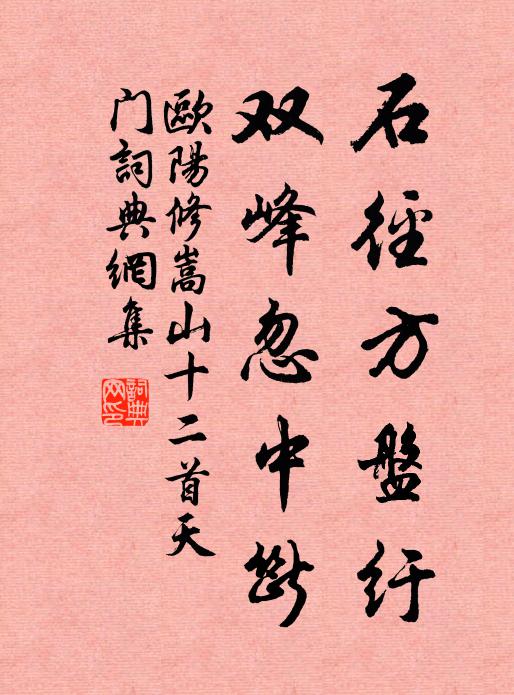 石徑方盤纡
双峰忽中斷
歐陽修嵩山十二首天
门詞典網集
詞典
网印